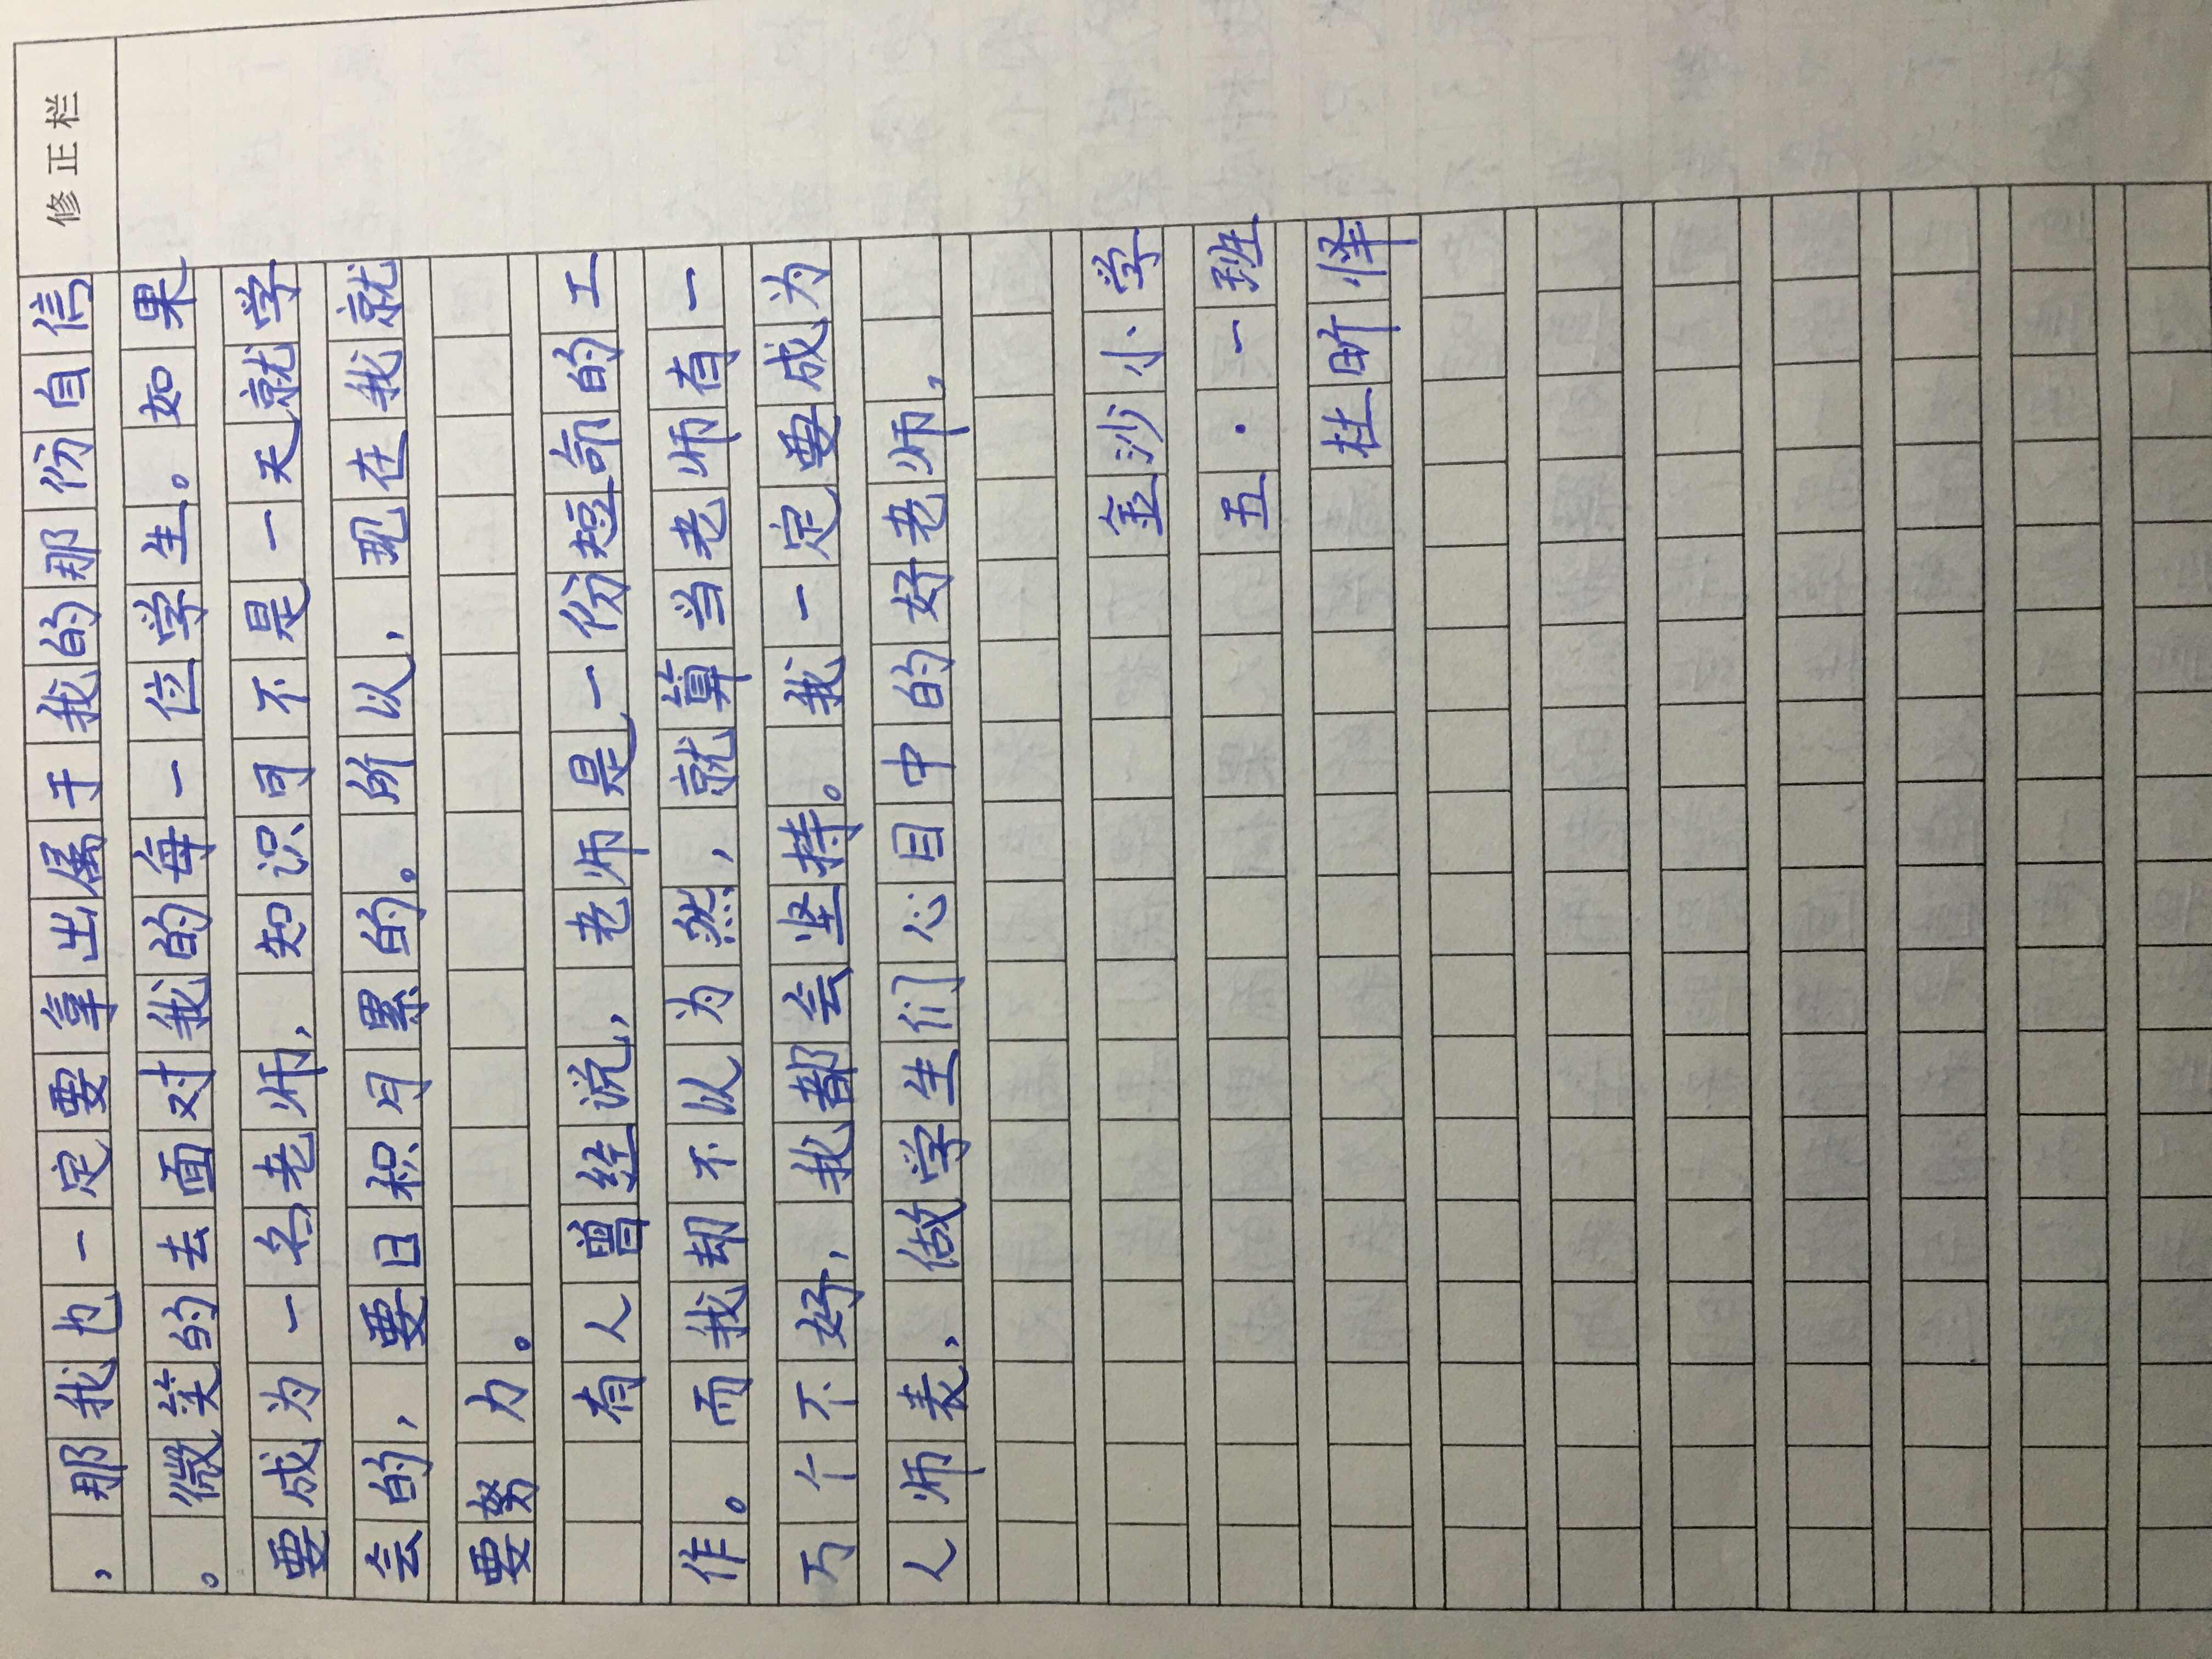 修正栏
，那我也一定要拿出属于我的那份自信
。微笑的去面对我的每一位学生。如果
要成为一名老师，知识可不是一天就学
会的，要日积月累的。所以，现在我就
要努力。
有人曾经说，老师是一份短命的工
作。而我却不以为然，就算当老师有一
万个不好，我都会坚持。我一定要成为
人师表，做学生们心目中的好老师。
金沙小学
五·一班
杜昕怿